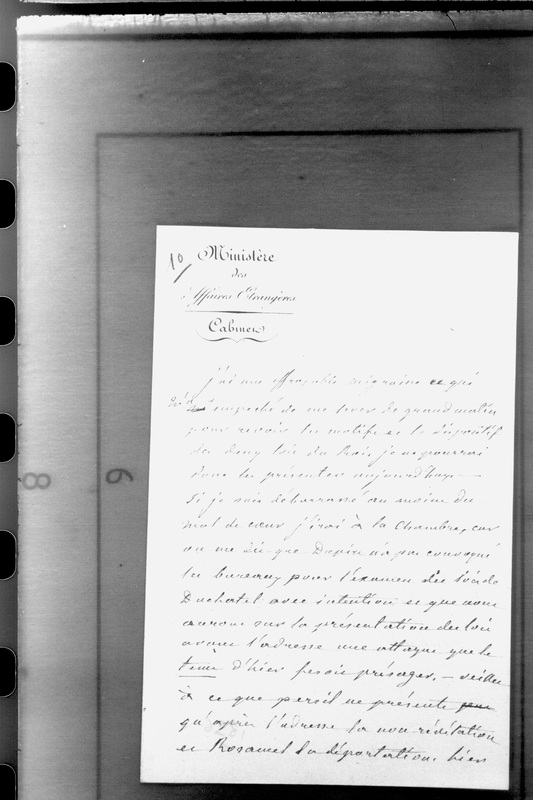 10/
Ministère
des
Affaires Etrangères
Cabinet
j'ai une effroyable migraine ce qui
m'a empeché de me lever de grand matin
pour revoir les motifs et le dispositif
des deux lois du Roi, je ne pourrai
donc les présenter aujourd'huy —
Si je suis débarrassé au moins du
mal de cœur j'irai à la Chambre, car
on me dit que Dupin n'a pas convoqué
les bureaux pour l'examen des lois de
Duchatel avec intention et que nous
aurons sur la présentation des lois
avant l'adresse une attaque que le
tems d'hier fesait présager. — veillez
à ce que persil ne présente
qu'après l'adresse la non révélation
et Rosamel la déportation. bien